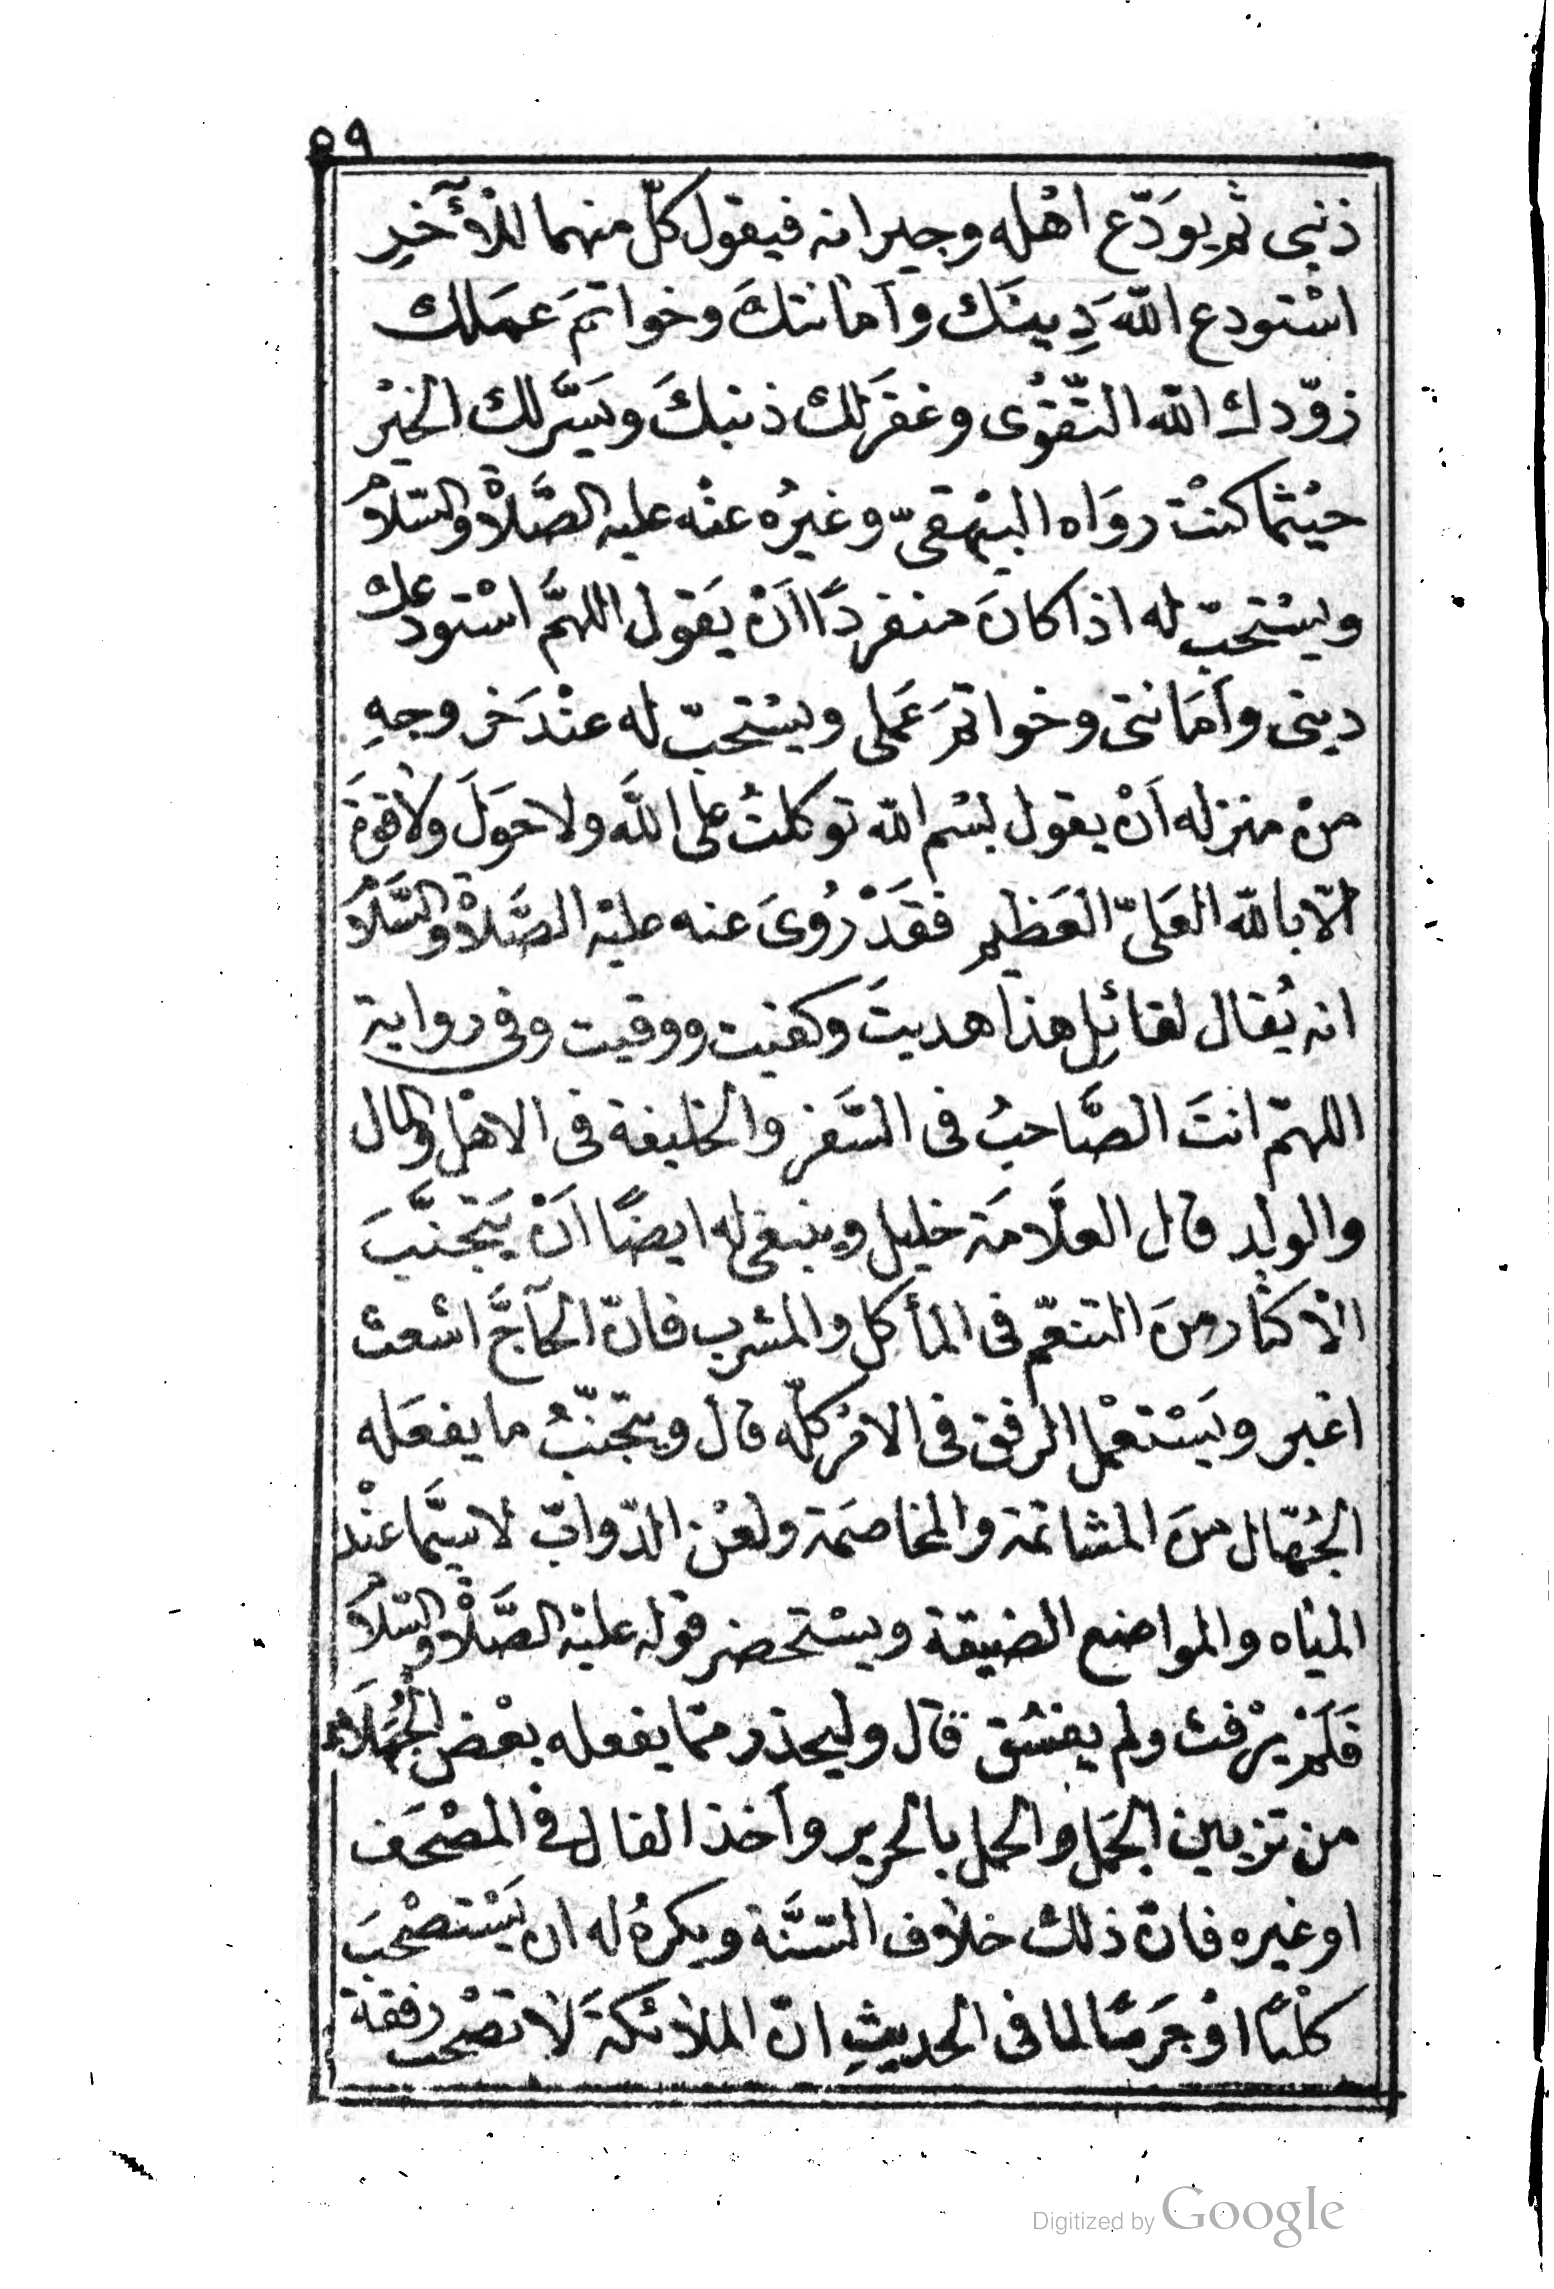 ٥٩
ذنبى ثم يوَدّع اهْله وجيرانه فيقول كلّ منهما للْأٓخَرِ
اسْتودع اللّهَ دِينَك وأمانتكَ وخواتمَ عمَلك
زوّدك اللّه التّقوْى وغفرَلك ذنبكَ ويَسَّرلك الخيْر
حيْثما كنْت روَاه البيْهقىّ وغيرُه عنْه عليه الصَّلاةْ والسّلامُ
ويسْتحبّ له اذا كانَ منفردًا اَنْ يَقول اللهمَّ اسْتودعك
دينى وأمَانتى وخواتمَ عَملى ويسْتحبّ له عنْدَ خروجهِ
منْ منزله اَنْ يقول بسْم اللّه توكلتُ على اللّهَ ولا حَوَلَ ولا قوةَ
الّا باللّه العَلىّ العَظيم فقَدْ رُوىَ عنه عليْه الصَّلاةْ والسَّلامُ
انه يُقال لقائِل هذا هديتَ وكفيت ووقيت وفى رواية
اللهمّ انتَ الصَّاحبُ فى السَّفر والخليفة فى الاهْل والمال
والولدِ قال العلَّامَة خليل وينبغى له ايضًا اَنْ يَتجنَّبَ
الْاكثار منَ التنعّم فى المأكل والمشرب فانّ الحآجَّ اشعث
اغبر ويَسْتعْمل الرفق فى الامْر كلّه قال ويتجنّبُ ما يفعَله
الجُهّال منَ المشاتمة والمخاصَمة ولعْن الدّوابّ لاسيَّما عنْد
المياه والمواضع الضيقة ويسْتحضر قوله عليْه الصَّلاةْ والسّلامُ
فَلَمْ يرْفث ولم يفسُق قال وليحذر ممّا يفعله بعْض الجُهَلاء
من تزيين الجمَل والحمل بالحرير وأخذ الفال فى المصْحَف
او غيره فانّ ذلك خلاف السّنَّة ويكرهُ له ان يَسْتصْحبَ
كلْبًا اوْ جَرسًا لما فى الحديثِ انّ الملائكةَ لا تصْحب رفقة
Digitized by Google